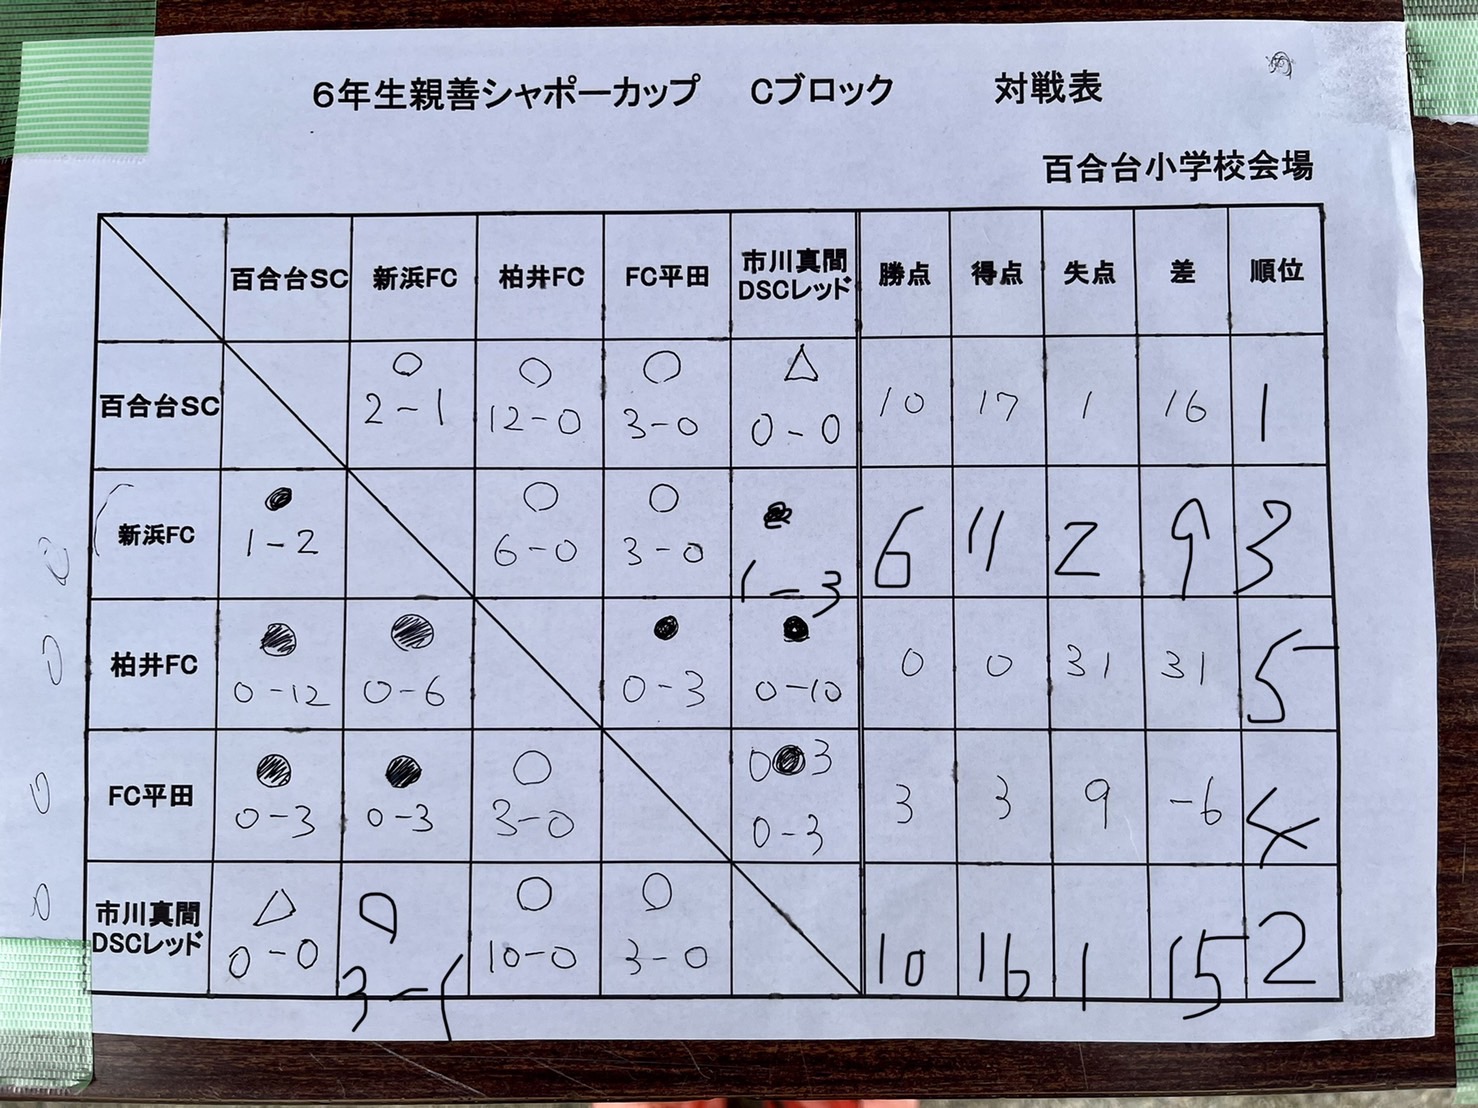 6年生親善シャポーカップ Cブロック 対戦表
百合台小学校会場
百合台SC 新浜FC 柏井FC FC平田 市川真間DSCレッド 勝点 得点 失点 差 順位
百合台SC ○ 2-1 ○ 12-0 ○ 3-0 △ 0-0 10 17 1 16 1
新浜FC ● 1-2 ○ 6-0 ○ 3-0 ● 1-3 6 11 2 9 3
柏井FC ● 0-12 ● 0-6 ● 0-3 ● 0-10 0 0 31 31 5
FC平田 ● 0-3 ● 0-3 ○ 3-0 0●3 0-3 3 3 9 -6 4
市川真間DSCレッド △ 0-0 ○ 3-1 ○ 10-0 ○ 3-0 10 16 1 15 2